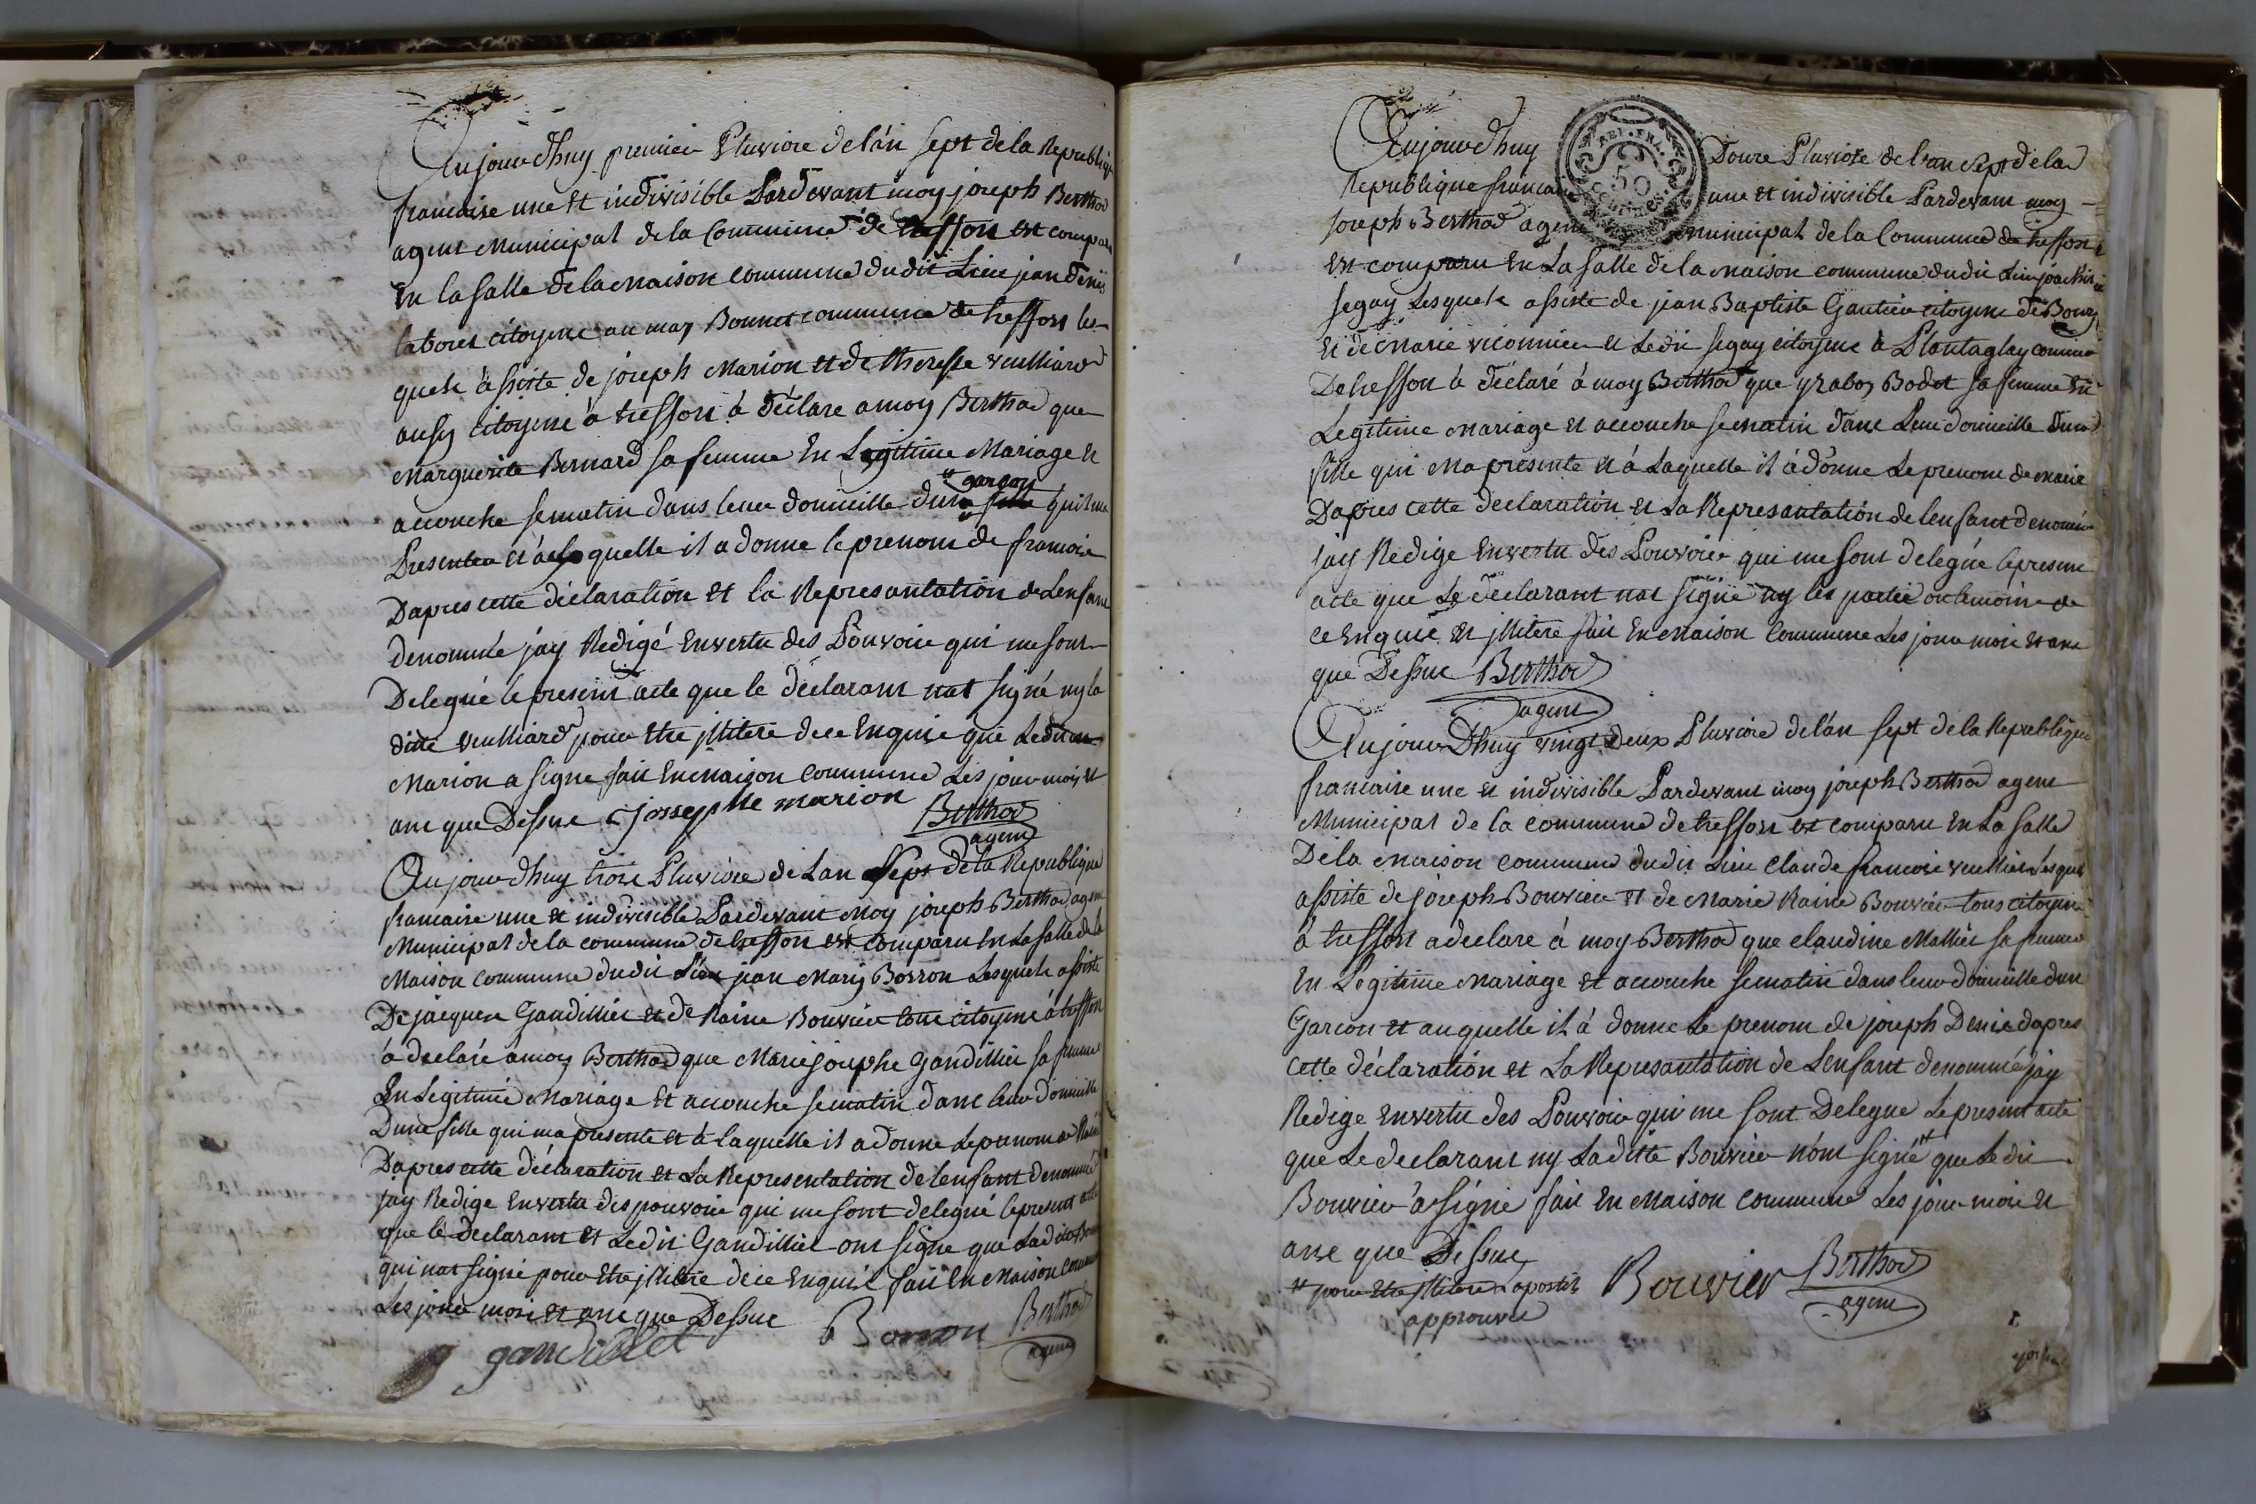 Aujourdhuy premier Pluviose de lan sept de la Republiq
francaise une et indivisible Pardevant moy joseph Berthod
agent Municipal de la Commune de treffort est compar
En la salle de la maison commune dudit Lieu jean denis
citoyen au may Bonnet commune de treffort les
quels assiste de joseph Marion et de theresse veulliard
ausy citoyens à treffort à déclare a moy Berthod que
Marguerite Bernard sa femme En Legitime Mariage et
accouche se matin dans leur domicille dun garcon fille quil me
Presenter et a la quelle il a donne le prenom de francois
Dapres cette déclaration et la Represantation de Lenfant
denommé jay Redigé En vertu des Pouvoir qui me sont
Delegué le present acte que le déclarant nat signé ny la
ditte veulliard pour Etre jllitere de ce Enquis que Ledit
Marion a signe fait En maison commune Les jour mois et
ans que Dessus josseph Me marion Berthod
agent
Aujourdhuy trois Pluviose de Lan Sept de la Republique
francaise une et indivisible Pardevant Moy joseph Berthod agent
Municipal de la commune de treffort est comparu En La Salle de la
Maison commune dudit Lieu jean Mary Borron Lesquels assiste
De jacques Gandillet et de Raine Bouvier tous citoyens à treffort
à déclaré à moy Berthod que Marie josephe Gandillet sa femme
En Legitime Mariage Et accouche se matin dans leur domicille
Dune fille qui ma presente et à laquelle il a donne Le prenom de
Dapres cette déclaration et La Representation de lenfant denommé
jay Redige En vertu des pouvoir qui me sont delegué le present acte
que le Declarant et Ledit Gandillet ont signe que Ladite
qui nat signé pour Etre jllitere de ce Enquis fait En Maison
Les jour mois et ans que Dessus
gandillet Borron Berthod
agent
Aujourdhuy Douze Pluviose de Lan Sept de la
Republique francaise une et indivisible Pardevant moy
joseph Berthod agent municipal de la Commune de treffort
Est comparu En La Salle de la Maison commune dudit Lieu
segay Lesquels assiste de jean Baptiste Gautier citoyen de Bourg
et de Marie viconnier et Ledit segay citoyens à Plantaglay commune
De treffort à déclaré à moy Berthod que Bodet sa femme En
Legitime Mariage et accouche se matin dans Leur domicille dune
fille qui Ma présente et à Laquelle il à donne Le prenom de Marie
Dapres cette declaration et La Represantation de lenfant denommé
jay Redige En vertu des Pouvoir qui me sont delegué le present
acte que Le déclarant nat signé ny les partie ou temoins de
ce Enquis et jllitere fait En Maison Commune Les jour mois et ans
que Dessus Berthod
agent
Aujourdhuy vingt Deux Pluviose de lan sept de la Republique
francaise une et indivisible Pardevant moy joseph Berthod agent
Municipal de la commune de treffort est comparu En La Salle
De la Maison commune dudit Lieu Claude francois veullier Lesquel
assiste de joseph Bouvier et de Marie Raine Bouvier tous citoyens
à treffort a declare à moy Berthod que claudine Mathier sa femme
En Legitime Mariage et accouche se matin dans leur domicille dun
Garcon et auquelle il à donne Le prenom de joseph Denis dapres
cette déclaration et La Represantation de Lenfant denommé jay
Redige En vertu des Pouvoir qui me sont Delegue Le present acte
que Le declarant ny Laditte Bouvier nont signé que Le dit
Bouvier à signé fait En Maison commune Les jour mois et
ans que Dessus
pour Etre jllitere apostile Bouvier Berthod
approuvée agent